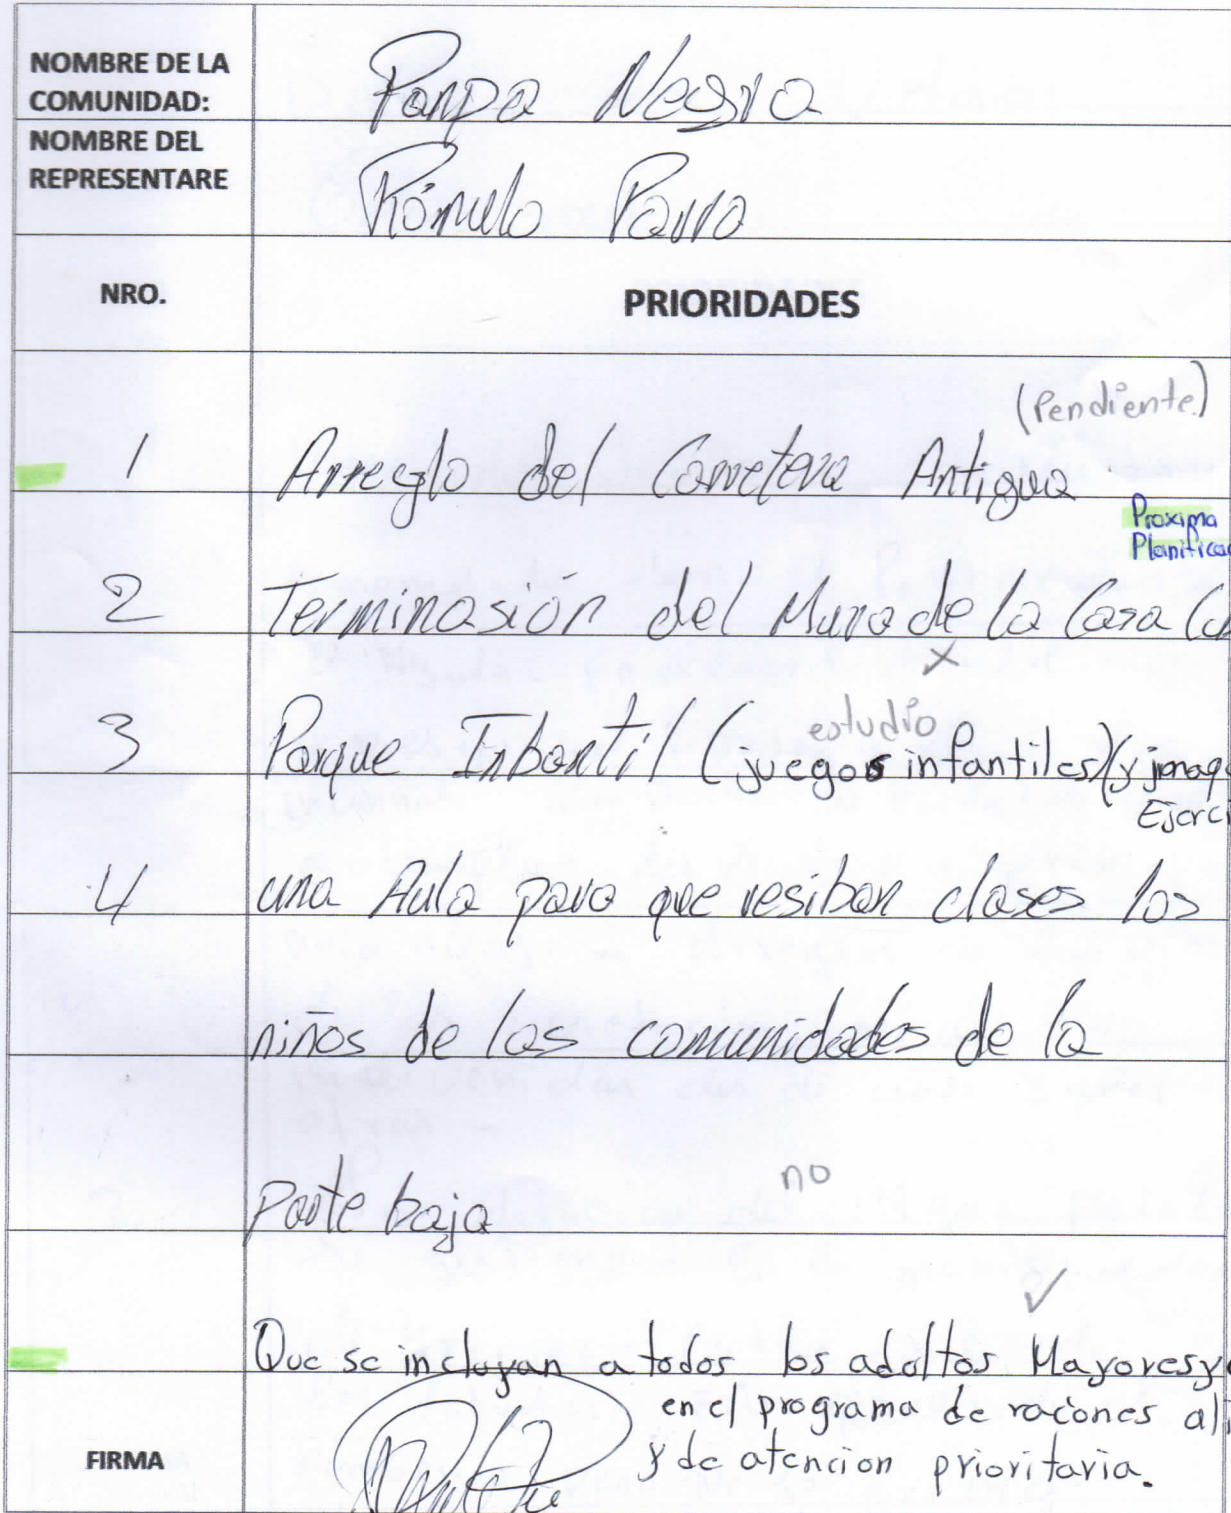 NOMBRE DE LA
COMUNIDAD:
Panpa Negra
NOMBRE DEL
REPRESENTARE
Rómulo Parra
NRO.
PRIORIDADES
(Pendiente)
1 Arreglo del Carretera Antigua
Proxima
Planificac
2 Terminasión del Muro de la Casa Com
x
estudio
3 Parque Infantil (juegos infantiles) (y
Ejerci
4 una Aula para que resiban clases los
niños de las comunidades de la
Parte baja
no
✓
Que se incluyan a todos los adultos Mayores y
en el programa de raciones ali
y de atencion prioritaria.
FIRMA